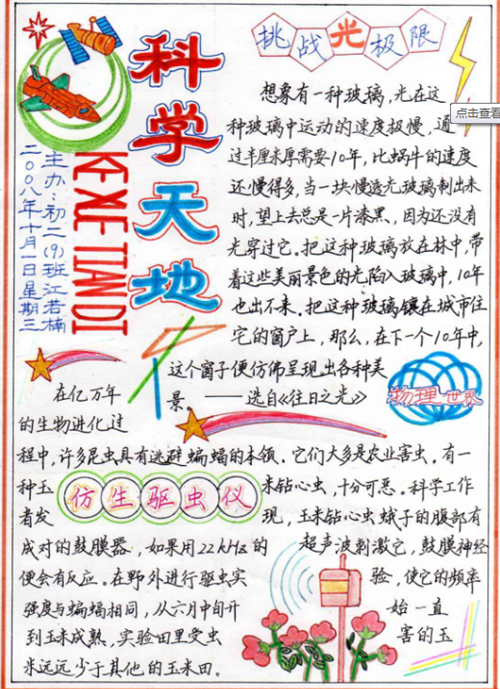 科学天地
KE XUE TIAN DI
主办：初二(9)班江若楠
二00八年十月一日星期三
挑战光极限
想象有一种玻璃，光在这
种玻璃中运动的速度极慢，通
点击查看
过半厘米厚需要10年，比蜗牛的速度
还慢得多，当一块慢透光玻璃制出来
时，望上去总是一片漆黑，因为还没有
光穿过它。把这种玻璃放在林中，带
着这些美丽景色的光陷入玻璃中，10年
也出不来。把这种玻璃镶在城市住
宅的窗户上，那么，在下一个10年中，
这个窗子便仿佛呈现出各种美
景 ——选自《往日之光》
物理世界
仿生驱虫仪
在亿万年
的生物进化过
程中，许多昆虫具有逃避蝙蝠的本领。它们大多是农业害虫，有一
种玉米钻心虫，十分可恶。科学工作
者发现，玉米钻心虫蛾子的腹部有
成对的鼓膜器，如果用22kHz的超声波刺激它，鼓膜神经
便会有反应。在野外进行驱虫实验，使它的频率
强度与蝙蝠相同，从六月中旬开始一直
到玉米成熟，实验田里受虫害的玉
米远远少于其他的玉米田。